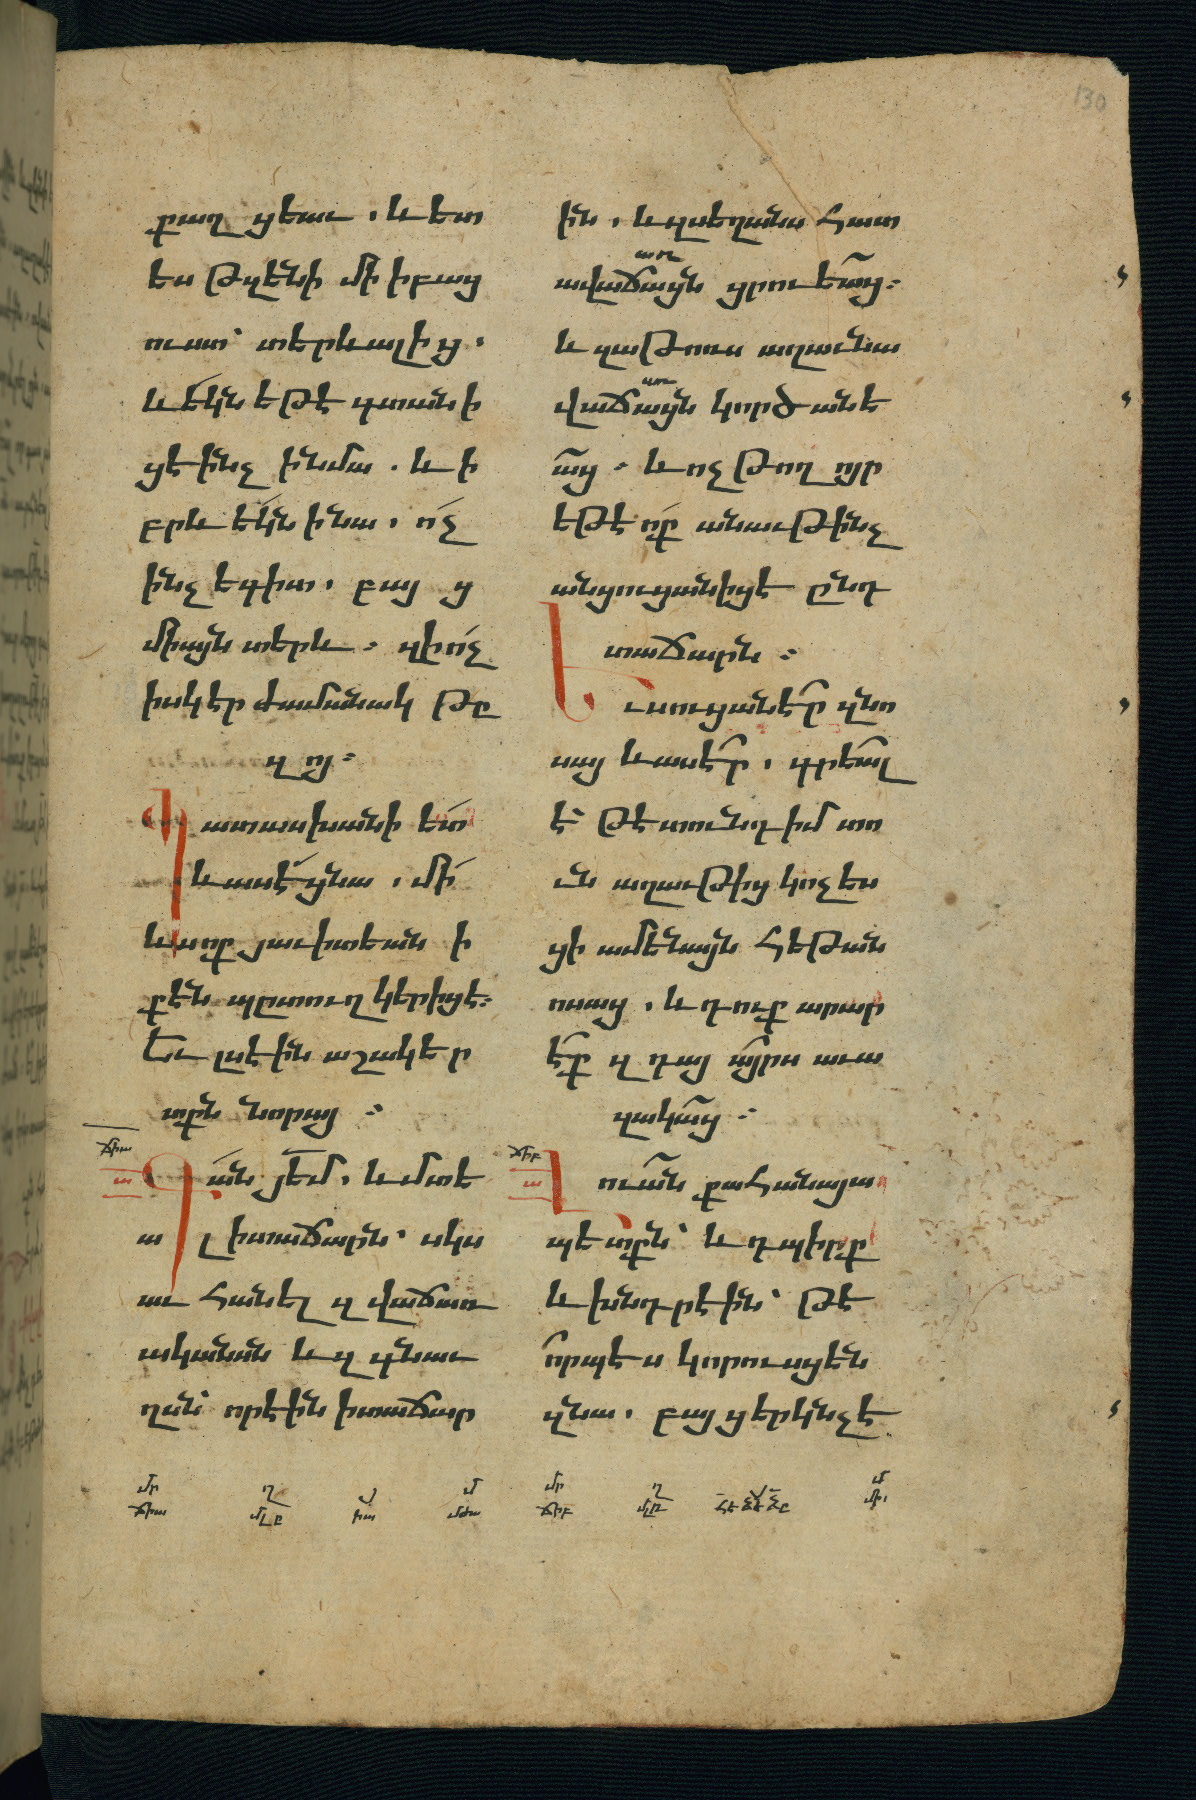 քաղցեաւ. և ետ
ես թզենի մի ի բաց
ուստ՝ տերևալից.
և եկն եթէ գտանի
ցէ ինչ ի նմա. և ի
բրև եկն ի նա. ոչ
ինչ եգիտ. բայց
միայն տերև. զի ոչ
իսկ էր ժամանակ թը
զոյ։
Պատասխանի ետ
և ասէ ցնա. մի
ևս ոք յաւիտեան ի
քէն պըտուղ կերիցէ։
Եւ լսէին աշակեր
տքն նորայ։
ճիա
ա
Գան յեմ. և մտե
ալ ի տաճարն՝ սկս
աւ հանել զվաճառ
ականսն և զգնաւ
ղսն՝ որ էին ի տաճար
ին. և զսեղանս հատ
առ
ավաճայն ցրուեաց։
և զաթոռս աղաւնա
առ
վաճայն կործանե
աց. և ոչ թող ոյր
եթէ ոք անաւթ ինչ
անցուցանիցէ ընդ
տաճարն։
Եւ ուսուցանէր զնո
սայ և ասէր. գրեալ
է՝ թէ տունդ իմ տո
ւն աղաւթից կոչես
ցի ամենայն հեթան
ոսաց. և դուք արար
էք զդայ այրս աւա
զակաց։
ճիբ
ա
Լուան քահանայա
պետքն՝ և դպիրք
և խնդրէին՝ թէ
որպէս կորուսցեն
զնա. բայց երկնչէ
մր ղ յ մ մր ղ մ
ճիա իա ճիբ
130